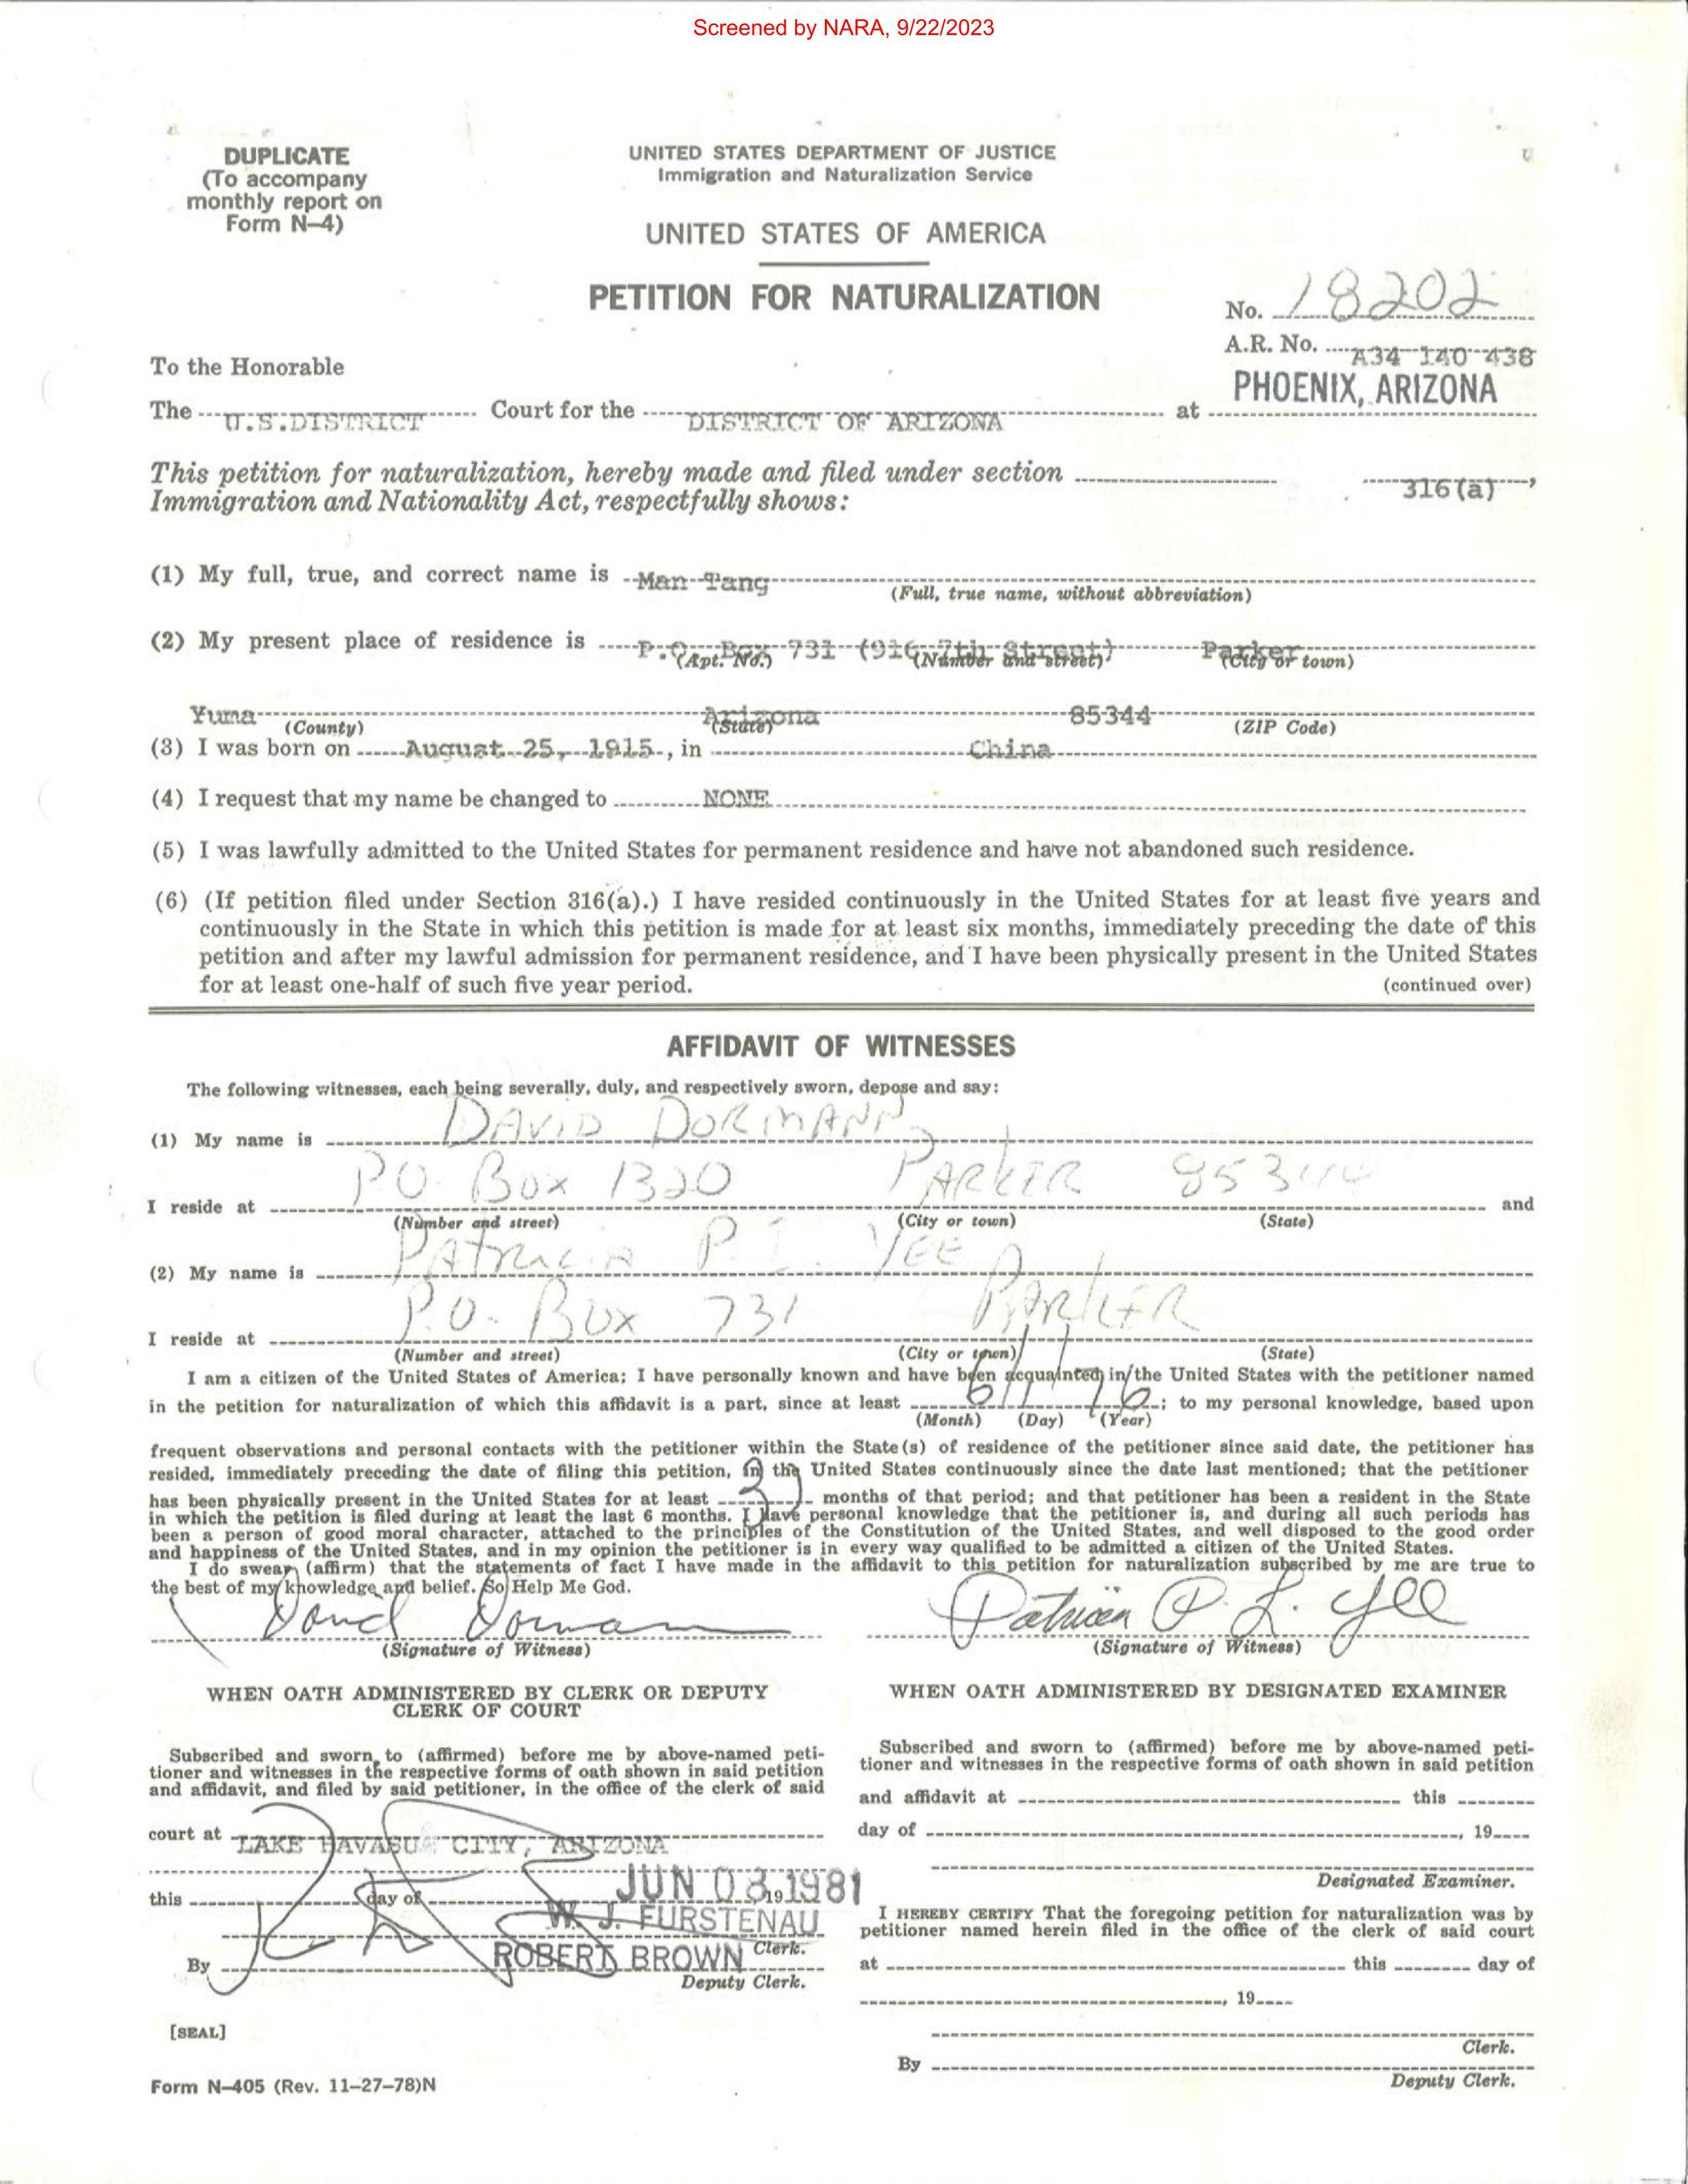 Screened by NARA, 9/22/2023
DUPLICATE
(To accompany
monthly report on
Form N-4)
UNITED STATES DEPARTMENT OF JUSTICE
Immigration and Naturalization Service
UNITED STATES OF AMERICA
PETITION FOR NATURALIZATION
No. 18202
A.R. No. A34 140 438
To the Honorable
PHOENIX, ARIZONA
The U.S.DISTRICT Court for the DISTRICT OF ARIZONA at
This petition for naturalization, hereby made and filed under section 316(a),
Immigration and Nationality Act, respectfully shows:
(1) My full, true, and correct name is Man Tang
(Full, true name, without abbreviation)
(2) My present place of residence is P.O. Box 731 (916 7th Street) Parker
(Apt. No.) (Number and street) (City or town)
Yuma Arizona 85344
(County) (State) (ZIP Code)
(3) I was born on August 25, 1915, in China
(4) I request that my name be changed to NONE
(5) I was lawfully admitted to the United States for permanent residence and have not abandoned such residence.
(6) (If petition filed under Section 316(a).) I have resided continuously in the United States for at least five years and
continuously in the State in which this petition is made for at least six months, immediately preceding the date of this
petition and after my lawful admission for permanent residence, and I have been physically present in the United States
for at least one-half of such five year period. (continued over)
AFFIDAVIT OF WITNESSES
The following witnesses, each being severally, duly, and respectively sworn, depose and say:
(1) My name is DAVID DORMANN
I reside at PO. Box 1320 PARKER 85344 and
(Number and street) (City or town) (State)
(2) My name is PATRICIA P. L. YEE
I reside at P.O. Box 731 PARKER
(Number and street) (City or town) (State)
I am a citizen of the United States of America; I have personally known and have been acquainted in the United States with the petitioner named
in the petition for naturalization of which this affidavit is a part, since at least 6/1/76; to my personal knowledge, based upon
(Month) (Day) (Year)
frequent observations and personal contacts with the petitioner within the State(s) of residence of the petitioner since said date, the petitioner has
resided, immediately preceding the date of filing this petition, in the United States continuously since the date last mentioned; that the petitioner
has been physically present in the United States for at least months of that period; and that petitioner has been a resident in the State
in which the petition is filed during at least the last 6 months. I have personal knowledge that the petitioner is, and during all such periods has
been a person of good moral character, attached to the principles of the Constitution of the United States, and well disposed to the good order
and happiness of the United States, and in my opinion the petitioner is in every way qualified to be admitted a citizen of the United States.
I do swear (affirm) that the statements of fact I have made in the affidavit to this petition for naturalization subscribed by me are true to
the best of my knowledge and belief. So Help Me God.
David Dormann Patricia P. L. Yee
(Signature of Witness) (Signature of Witness)
WHEN OATH ADMINISTERED BY CLERK OR DEPUTY
CLERK OF COURT
Subscribed and sworn to (affirmed) before me by above-named peti-
tioner and witnesses in the respective forms of oath shown in said petition
and affidavit, and filed by said petitioner, in the office of the clerk of said
court at LAKE HAVASU CITY, ARIZONA
this day of JUN 03 1981 19
W. J. FURSTENAU
Clerk.
By ROBERT BROWN
Deputy Clerk.
[SEAL]
Form N-405 (Rev. 11-27-78)N
WHEN OATH ADMINISTERED BY DESIGNATED EXAMINER
Subscribed and sworn to (affirmed) before me by above-named peti-
tioner and witnesses in the respective forms of oath shown in said petition
and affidavit at this
day of , 19
Designated Examiner.
I HEREBY CERTIFY That the foregoing petition for naturalization was by
petitioner named herein filed in the office of the clerk of said court
at this day of
, 19
Clerk.
By
Deputy Clerk.